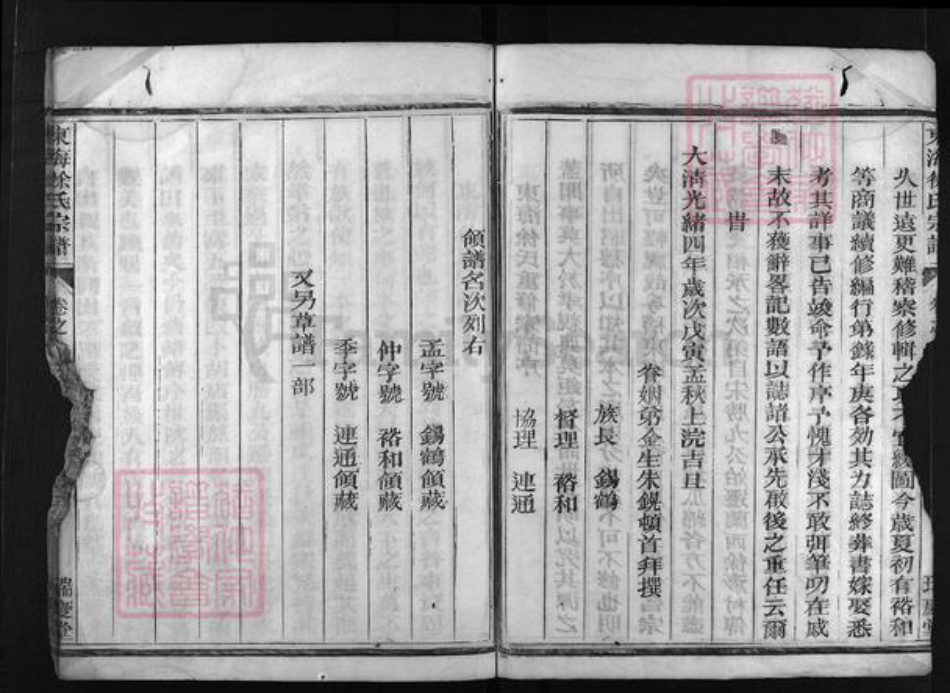 久世遠更難稽察修輯之 緩圖今歲夏初有裕和
等商議續修編行第錄年庚各効其力誌終葬書嫁娶悉
考其詳事已告竣命予作序予愧才淺不敢弭筆叨在戚
末故不獲辭畧記數語以誌諸公承先啟後之重任云爾
旹
大清光緒四年歲次戊寅孟秋上浣吉旦
眷姻弟金生朱鋭頓首拜撰
族長 錫鶴
督理 裕和
協理 連通
東海徐氏宗譜
卷之
瑞慶堂
領譜名次列右
孟字號 錫鶴領藏
仲字號 裕和領藏
季字號 連通領藏
又另草譜一部
東海徐氏宗譜
卷之
瑞慶堂